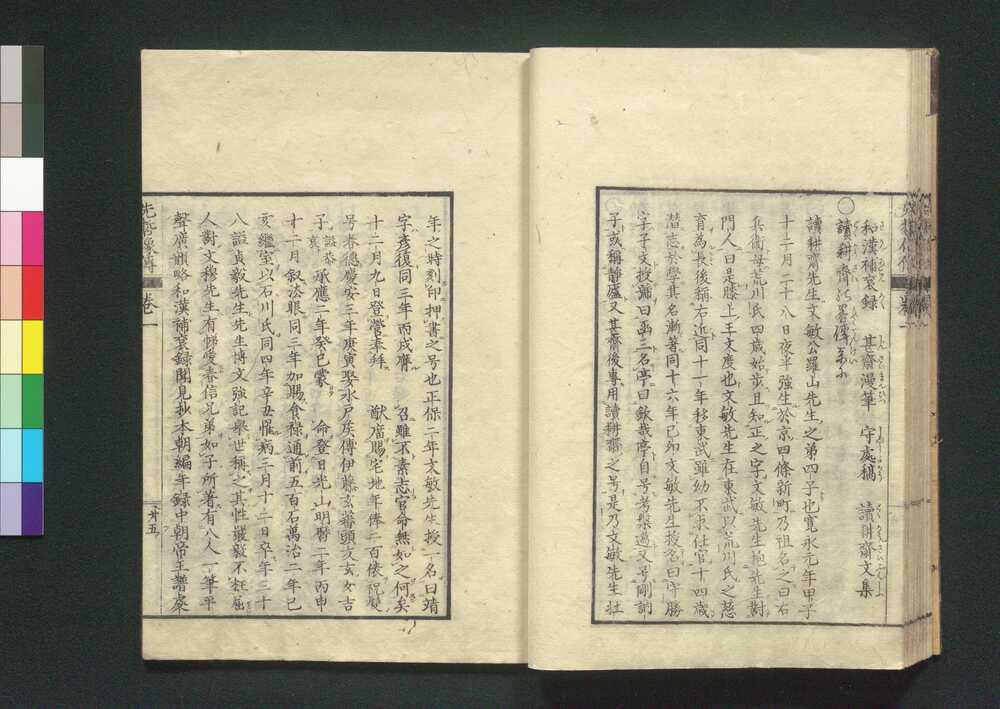 和漢補袞録 甚齋漫筆 守處稿 讀耕齋文集
讀耕齋
讀耕齋先生文敏公羅山先生之第四子也寛永元年甲子
十二月二十八日夜半強生於京四條新町乃祖名之曰右
兵衛母荒川氏四歳始歩且知正之字文敏先生抱先生對
門人曰是膝上王文度也文敏先生在東武以荒川氏之慈
育為長後稱右近同十一年移東武雖幼不求仕官十四歳
潜志於學其名漸著同十六年己卯文敏先生授名曰守勝
字子文授號曰函三名亭曰欽哉亭自号考槃邁又号剛訥
子或稱靜廬又甚齋後專用讀耕齋之号是乃文敏先生壮
年之時刻印押書之号也正保二年文敏先生授一名曰靖
字彦復同三年丙戌膺 召雖不素志官命無如之何矣
十二月九日登營奉拜 猷廣賜宅地年俸二百俵祝髮
号春德慶安三年庚寅娶水戸侯傅伊藤玄蕃頭友玄女吉
子 承應二年癸巳蒙 命登日光山明暦二年丙申
十二月叙法眼同三年加賜食禄通前五百石萬治二年己
亥繼室以石川氏同四年辛丑罹病三月十二日卒年三十
八謚貞毅先生先生博文強記擧世稱之其性嚴毅不枉屈
人對文穆先生有悌愛春信兄弟如子所著有八人一筆平
聲廣韻略和漢補袞録聞見抄本朝編年録中朝帝王譜豪
卷一
廿五